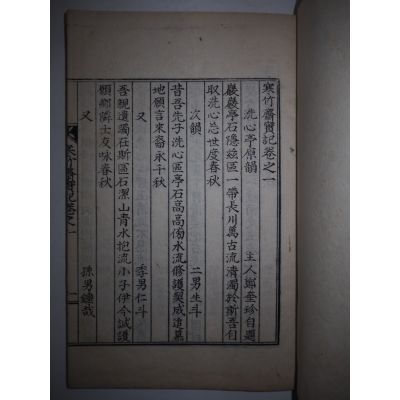 寒竹齋實記卷之一
洗心亭原韻 主人鄭奎珍自題
巖巖亭石隱玆區一帶長川萬古流清濁於斯吾自
取洗心忘世度春秋
次韻 二男生斗
昔吾先子洗心區亭石高高傍水流修護契成遺墓
地願言來裔永千秋
又 季男仁斗
吾親遺躅在斯區石潔山青水抱流小子伊今誠護
願鄉隣士友咏春秋
又 孫男鍾哉
寒竹齋實記卷之一 一